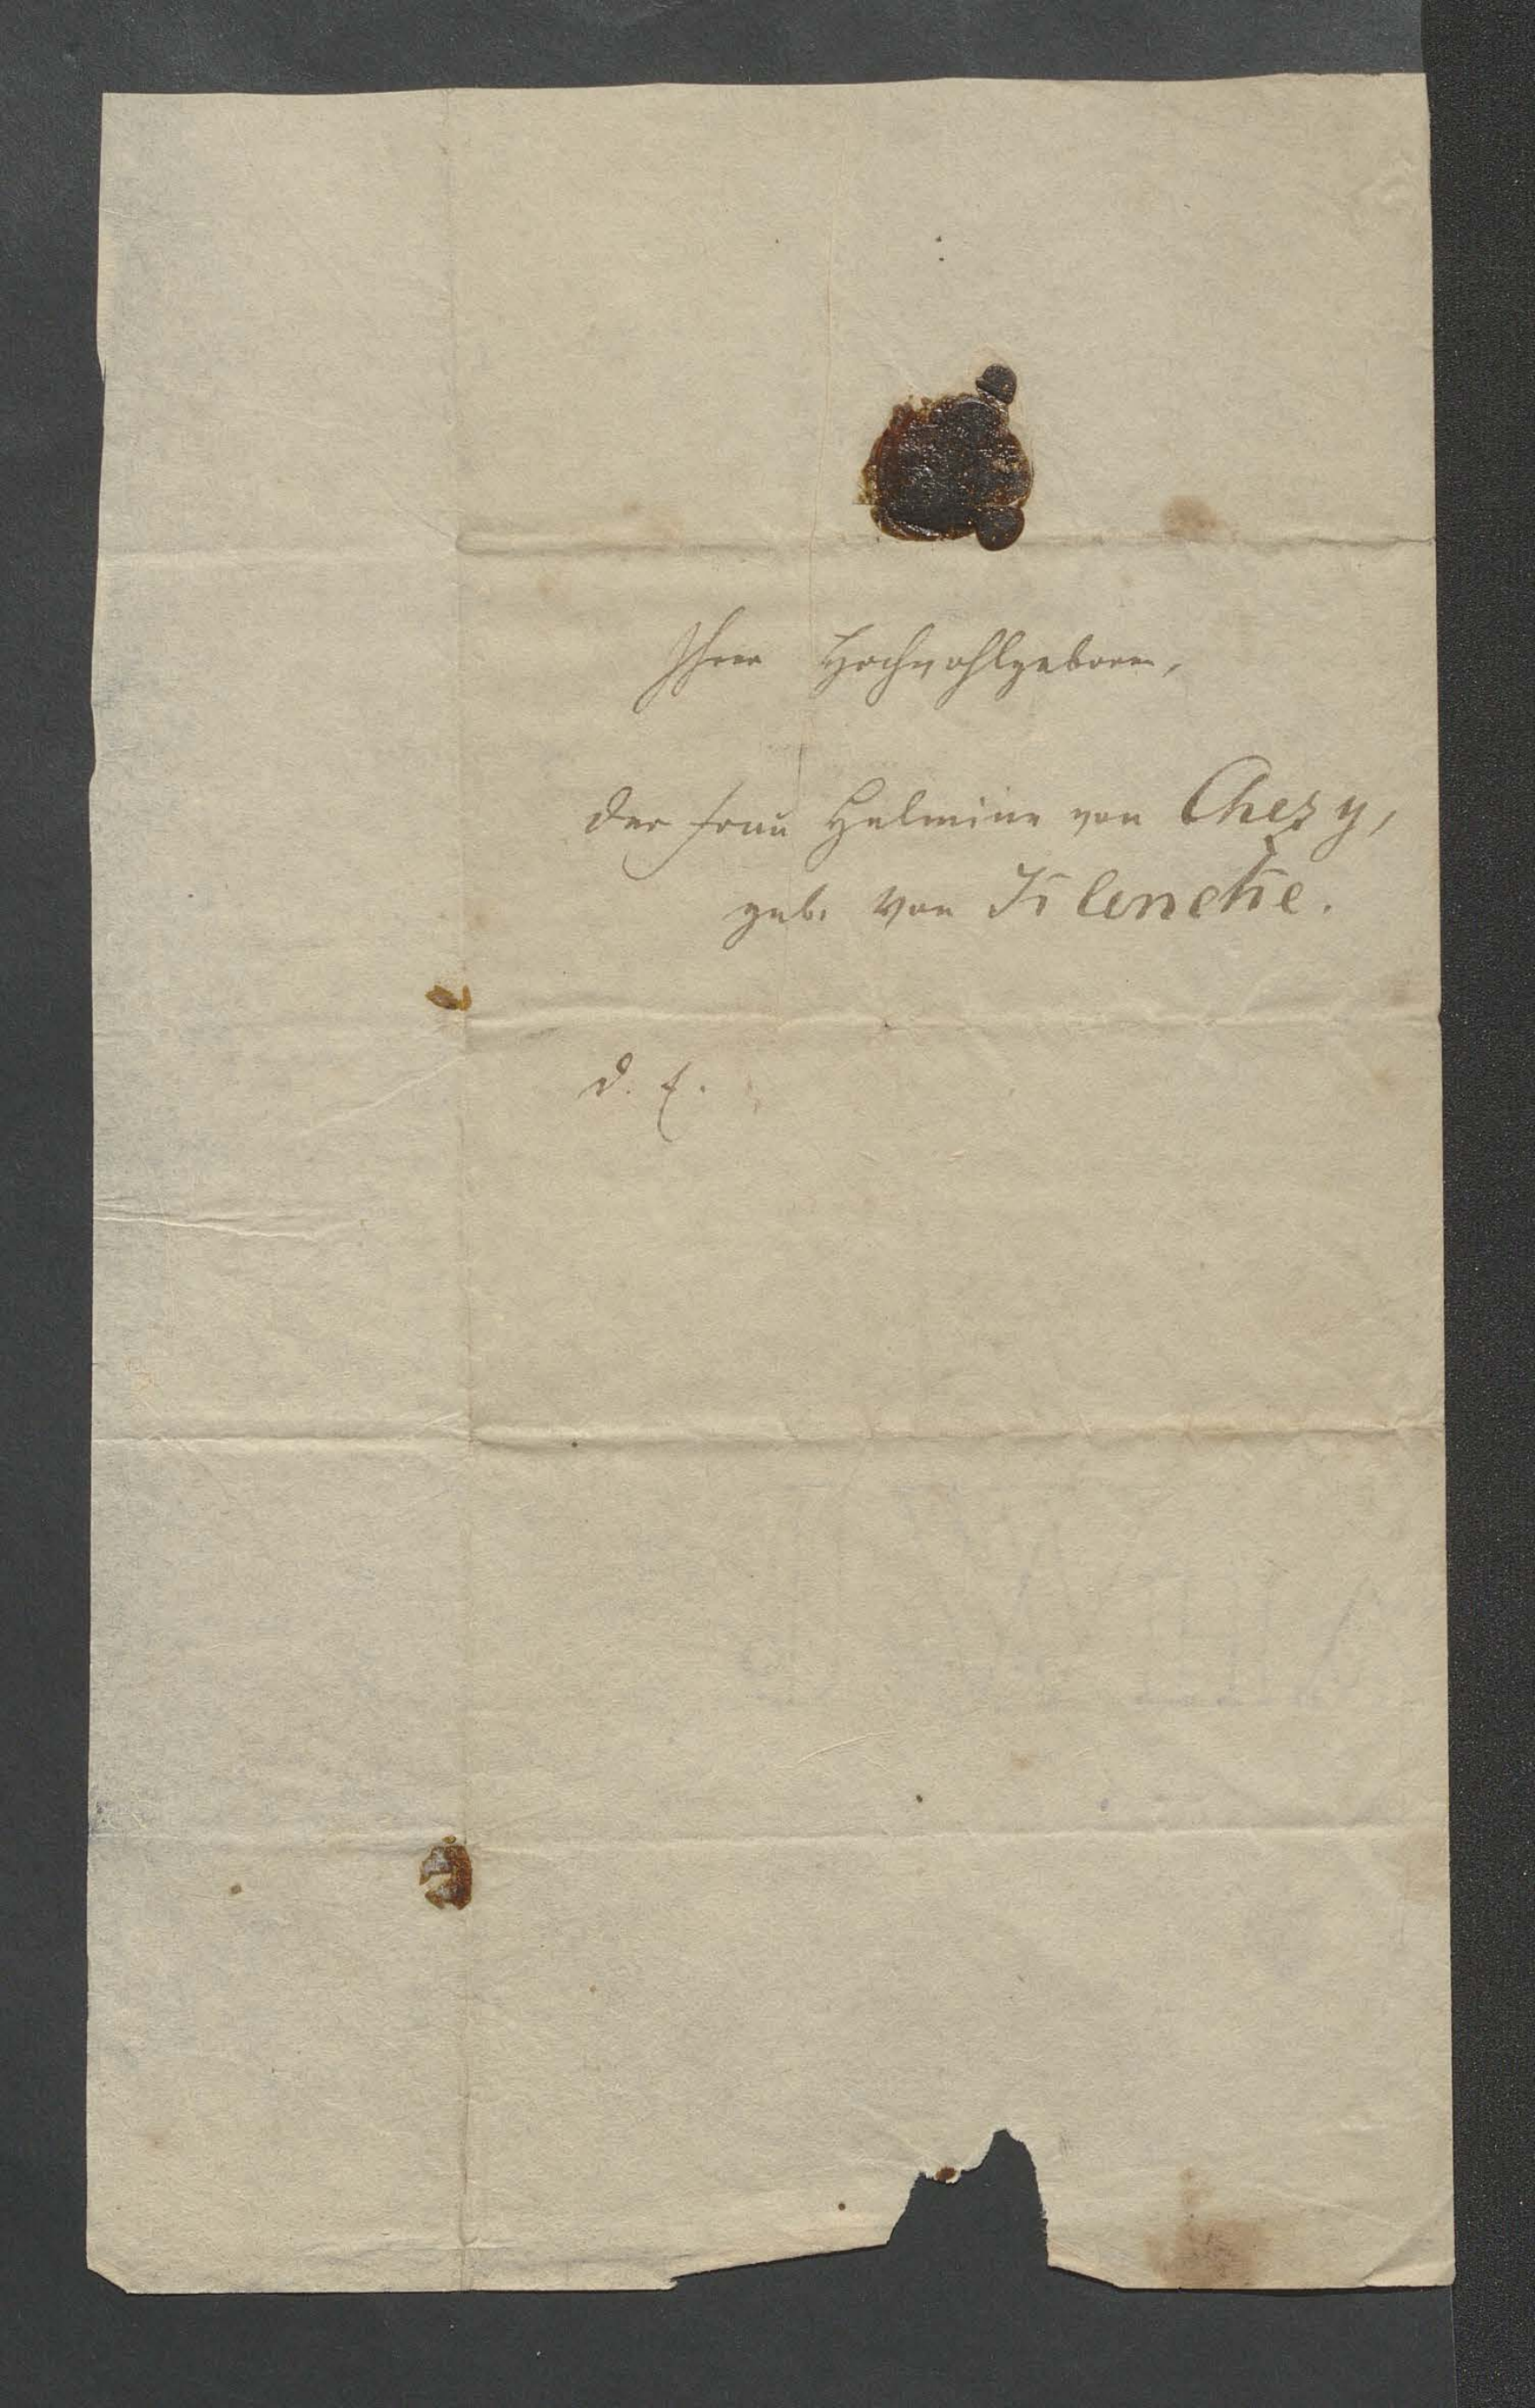 Ihrer Hochwohlgeboren,
der Frau Helmine von Chezy,
geb. von Klencke.
d. E.